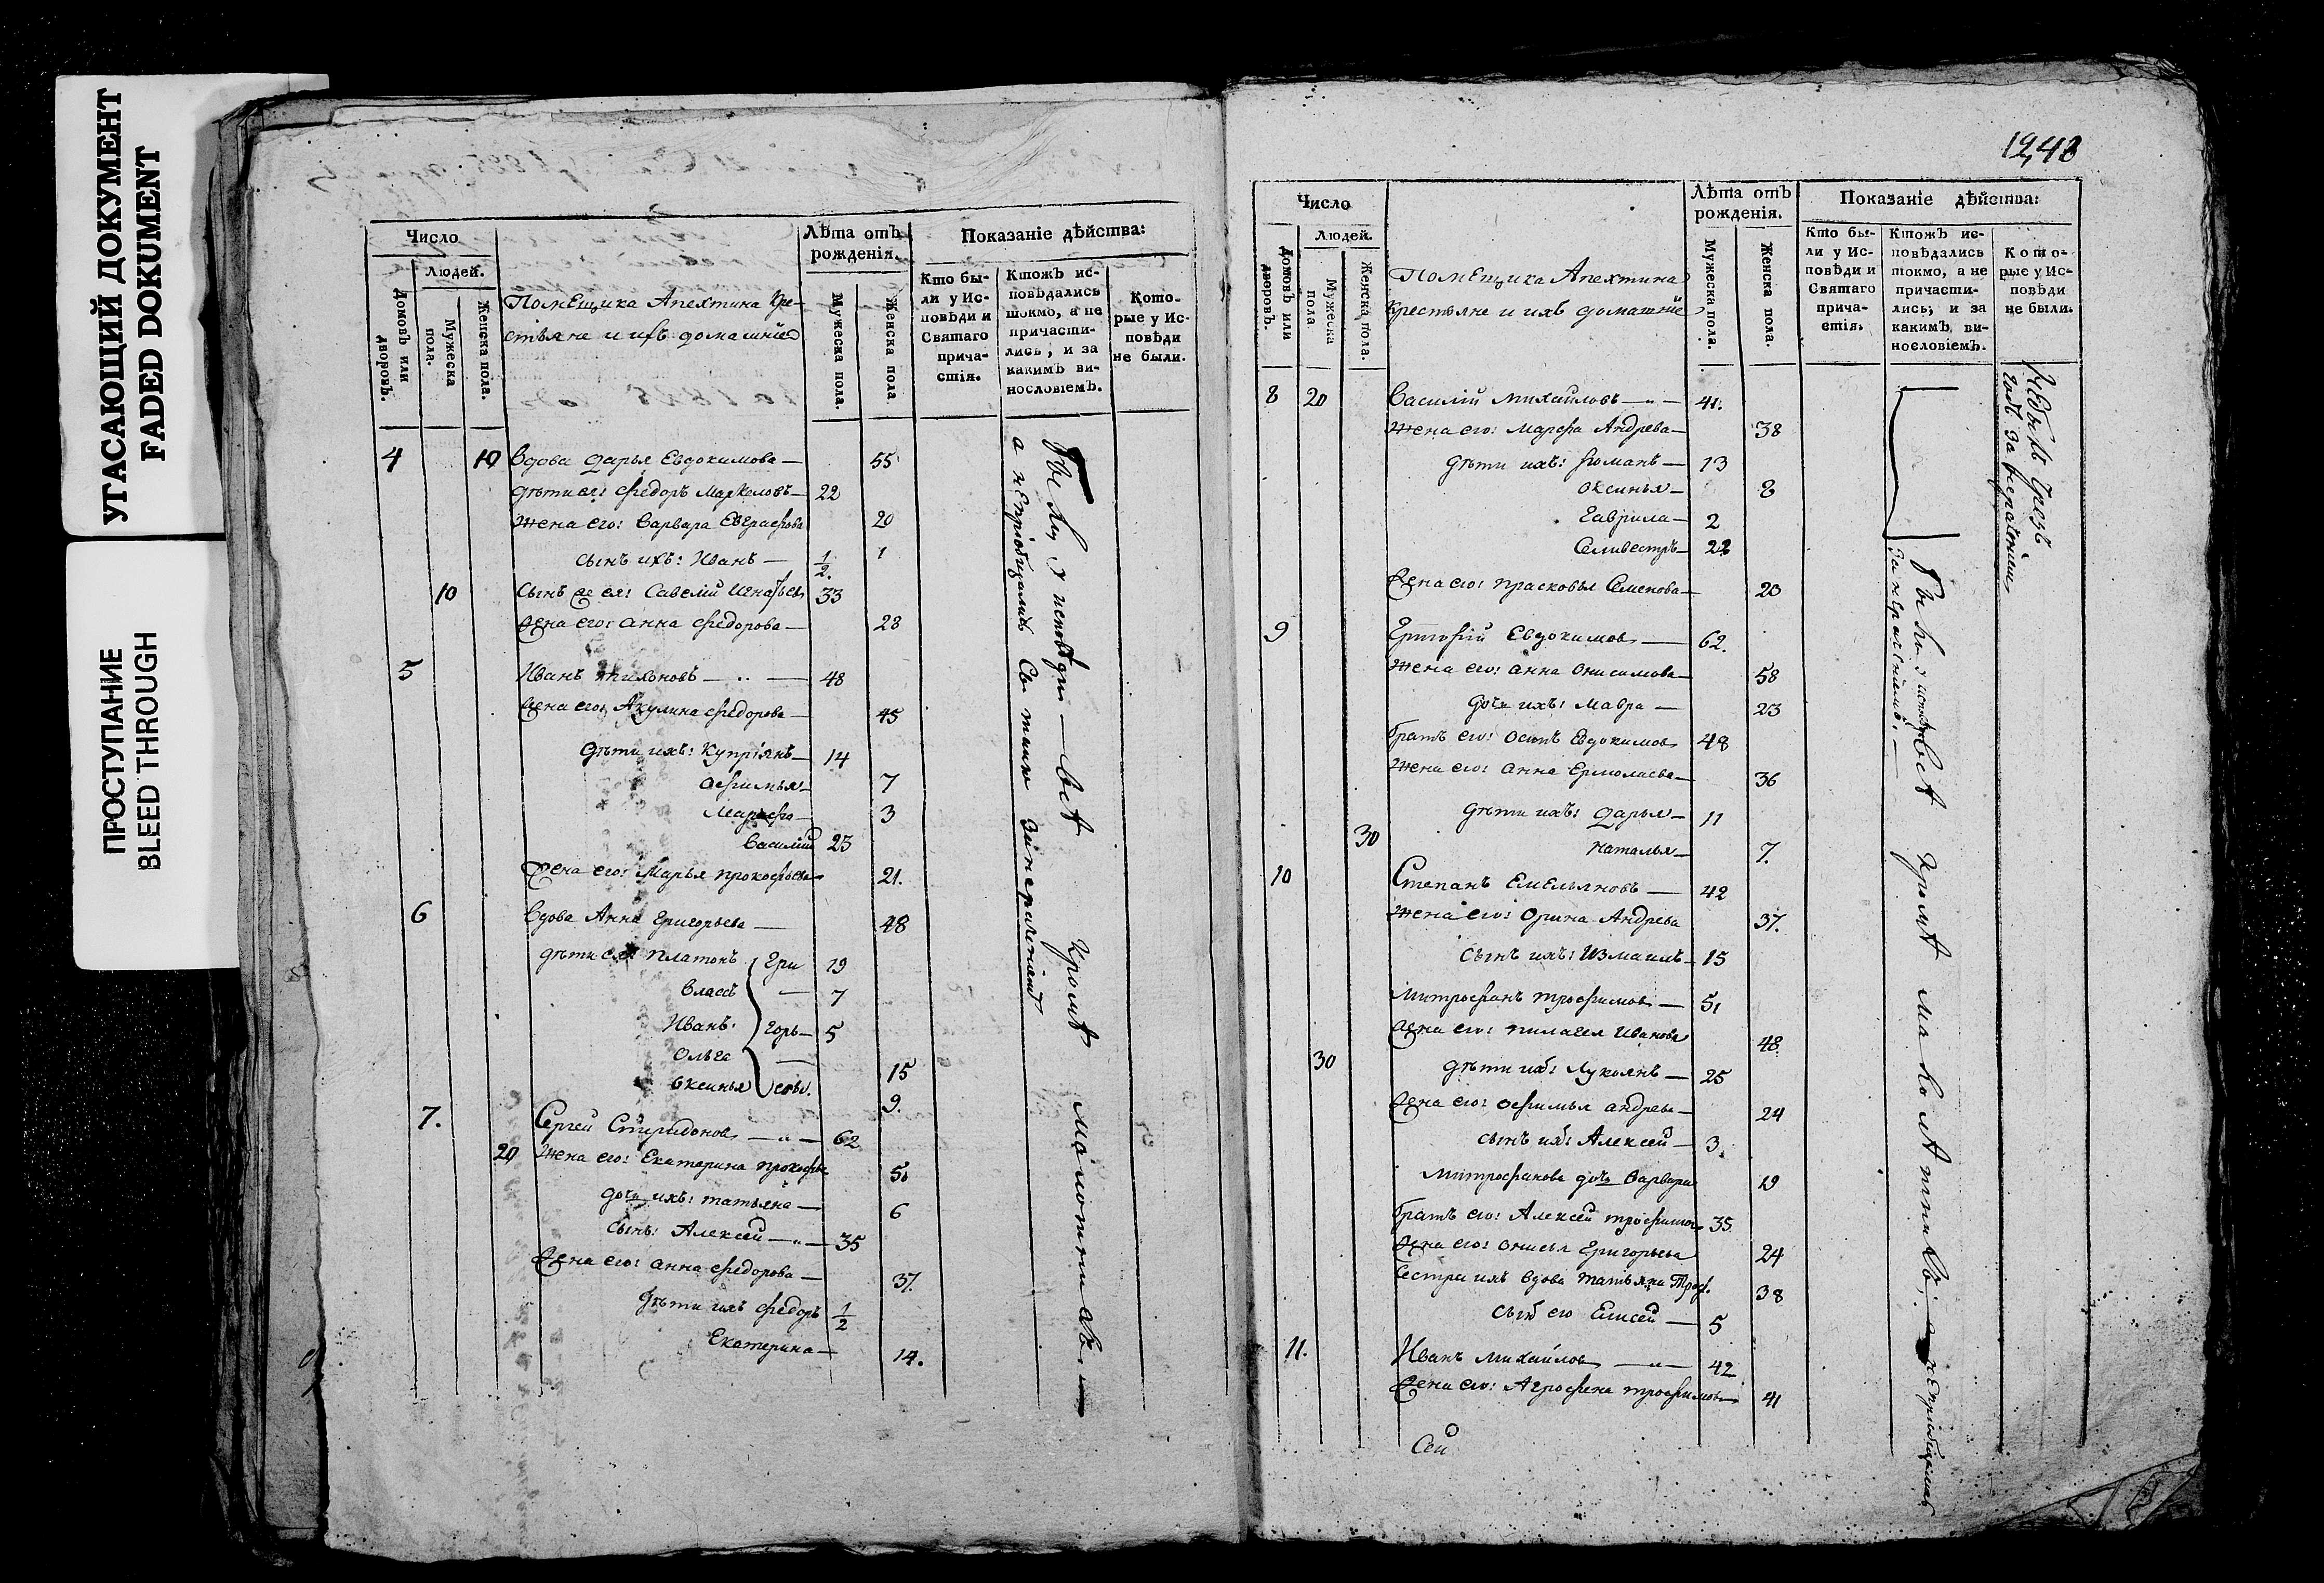 УГАСАЮЩИЙ ДОКУМЕНТ
FADED DOKUMENT
ПРОСТУПАНИЕ
BLEED THROUGH
Число
Людей.
Домовъ или дворовъ.
Мужеска пола.
Женска пола.
Помѣщика Апехтина кре-
стьяне и ихъ домашніе
Лѣта отъ рожденія.
Мужеска пола.
Женска пола
Показаніе дѣйства:
Кто бы-
ли у Ис-
повѣди и
Святаго
прича-
стія.
Ктожъ ис-
повѣдались
токмо, а не
причасти-
лись, и за
какимъ ви-
нословіемъ.
Кото-
рые у Ис-
повѣди
не были.
4 10 Вдова Дарья Евдокимова — 55
дѣти ея: Федоръ Маркеловъ — 22
жена его: Варвара Евграфова 20
сынъ ихъ: Иванъ — 1/2. 1
10 Сынъ ея: Савелій 33
жена его: Анна Федорова — 28
5 Иванъ — 48
жена его: Акулина Федорова — 45
дѣти ихъ: Купріянъ — 14
Афимья — 7
Марфа — 3
Василій 23
жена его: Марья Прокофьева 21.
6 Вдова Анна Григорьева — 48
дѣти Платонъ Гри 19
Власъ — 7
Иванъ. горь — 5
Ольга — 15
Оксинья евы. 9.
7. Сергей Спиридоновъ — 62
20 жена его: Екатерина Прокофье 50
дочь ихъ: Татьяна — 6
сынъ: Алексей — 35
жена его: Анна Федорова — 37.
дѣти ихъ Федоръ 1/2
Екатерина — 14.
у исповѣди — всѣ кромѣ малотникав. —
а непріобщались Св. таинъ за нераченіемъ
1243
Число
Людей.
Домовъ или дворовъ.
Мужеска пола
Женска пола.
Помѣщика Апехтина
крестьяне и ихъ домашніе
Лѣта отъ рожденія.
Мужеска пола.
Женска пола.
Показаніе дѣйства:
Кто бы-
ли у Ис-
повѣди и
Святаго
прича-
стія.
Ктожъ ис-
повѣдались
токмо, а не
причасти-
лись, и за
какимъ ви-
нословіемъ.
Кото-
рые у Ис-
повѣди
не были.
8 20 Василій Михайловъ — 41.
жена его: Марфа Андрева — 38
дѣти ихъ: Романъ — 13
Оксинья — 8
Гаврила — 2
Селивестръ — 22
жена его: Прасковья Семенова — 20
9 Григорій Евдокимов — 62.
жена его: Анна Онисимова — 58
дочь ихъ: Мавра — 23
братъ его: Осипъ Евдокимов 48
жена его: Анна Ермолаева — 36
дѣти ихъ: Дарья — 11
30 Наталья — 7.
10 Степанъ Емельяновъ — 42
жена его: Орина Андрева 37.
сынъ ихъ: Измаилъ — 15
Митрофанъ Трофимов — 51
жена его: Пилагея Иванова 48.
30 дѣти ихъ: Лукоянъ — 25
жена его: Офимья Андрева — 24
сынъ ихъ: Алексей — 3.
Митрофанова дочь Варвара 19
братъ его: Алексей Трофимов 35.
жена его: Онисья Григорьева 24
Сестра ихъ вдова Татьяна Троф. 38
сынъ его Елисей — 5
11. Иванъ Михайлов — 42
жена его: Агрофена Трофимов — 41
Сей
всѣ кромѣ малолѣтникав,
за нераченіемъ. —
непріобщились